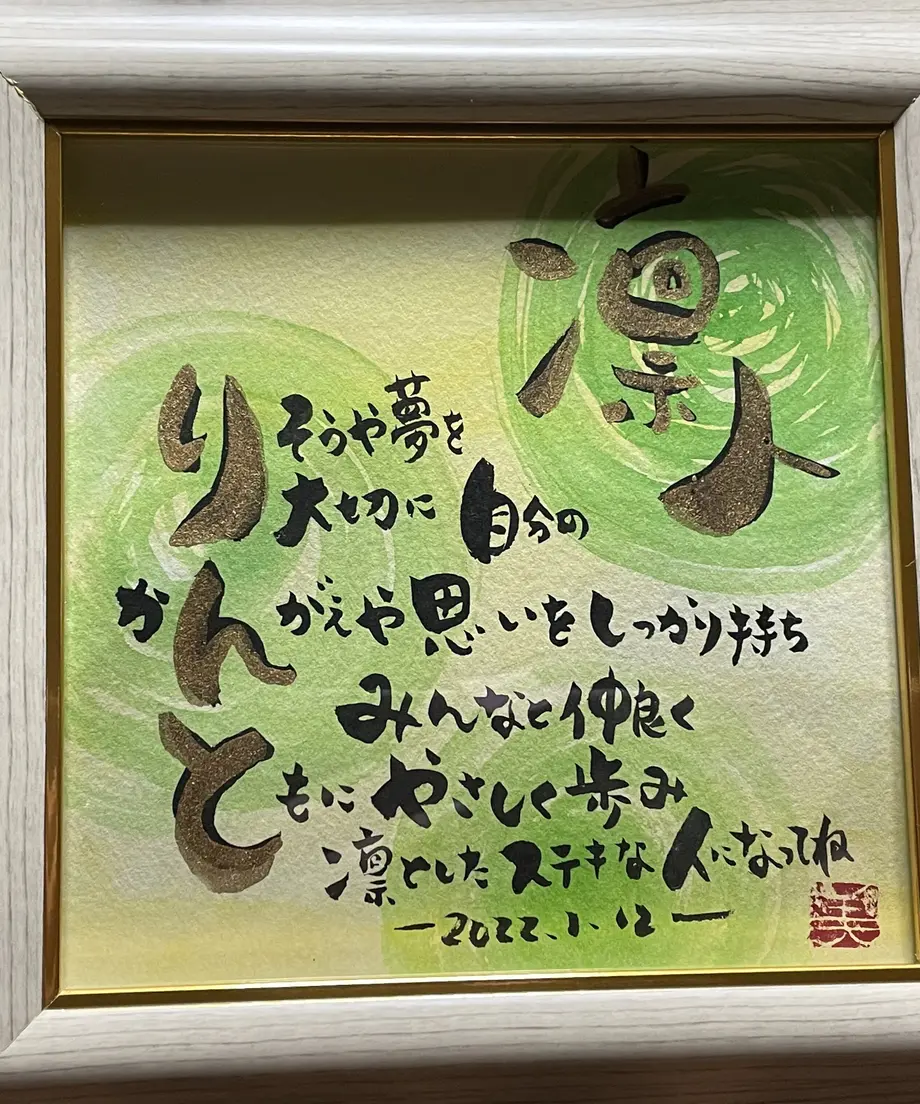 凛人
りそうや夢を
大切に 自分の
かんがえや思いをしっかり持ち
みんなと仲良く
ともにやさしく歩み
凛としたステキな人になってね
－2022.1.12－